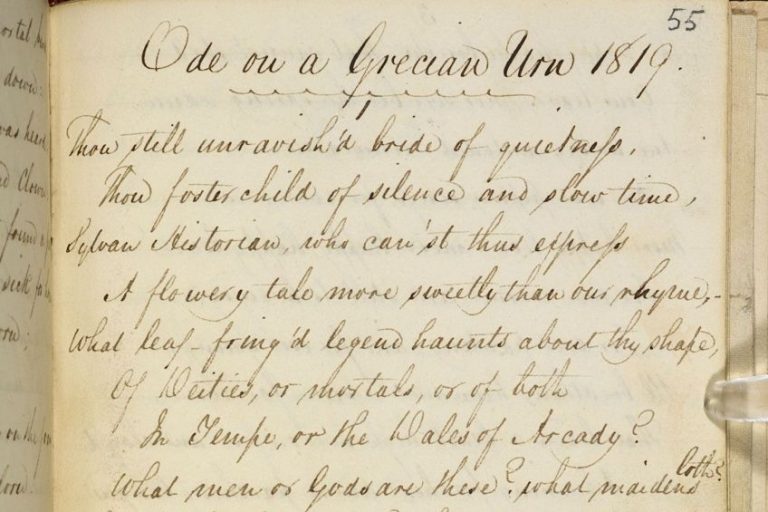 55
Ode on a Grecian Urn 1819.
1
Thou still unravish'd bride of quietness,
Thou foster child of silence and slow time,
Sylvan Historian, who can'st thus express
A flowery tale more sweetly than our rhyme,-
What leaf-fring'd legend haunts about thy shape,
Of Deities, or mortals, or of both
In Tempe, or the Dales of Arcady?
What men or Gods are these? what maidens loth?
down:
was heard
Clown
found
sick